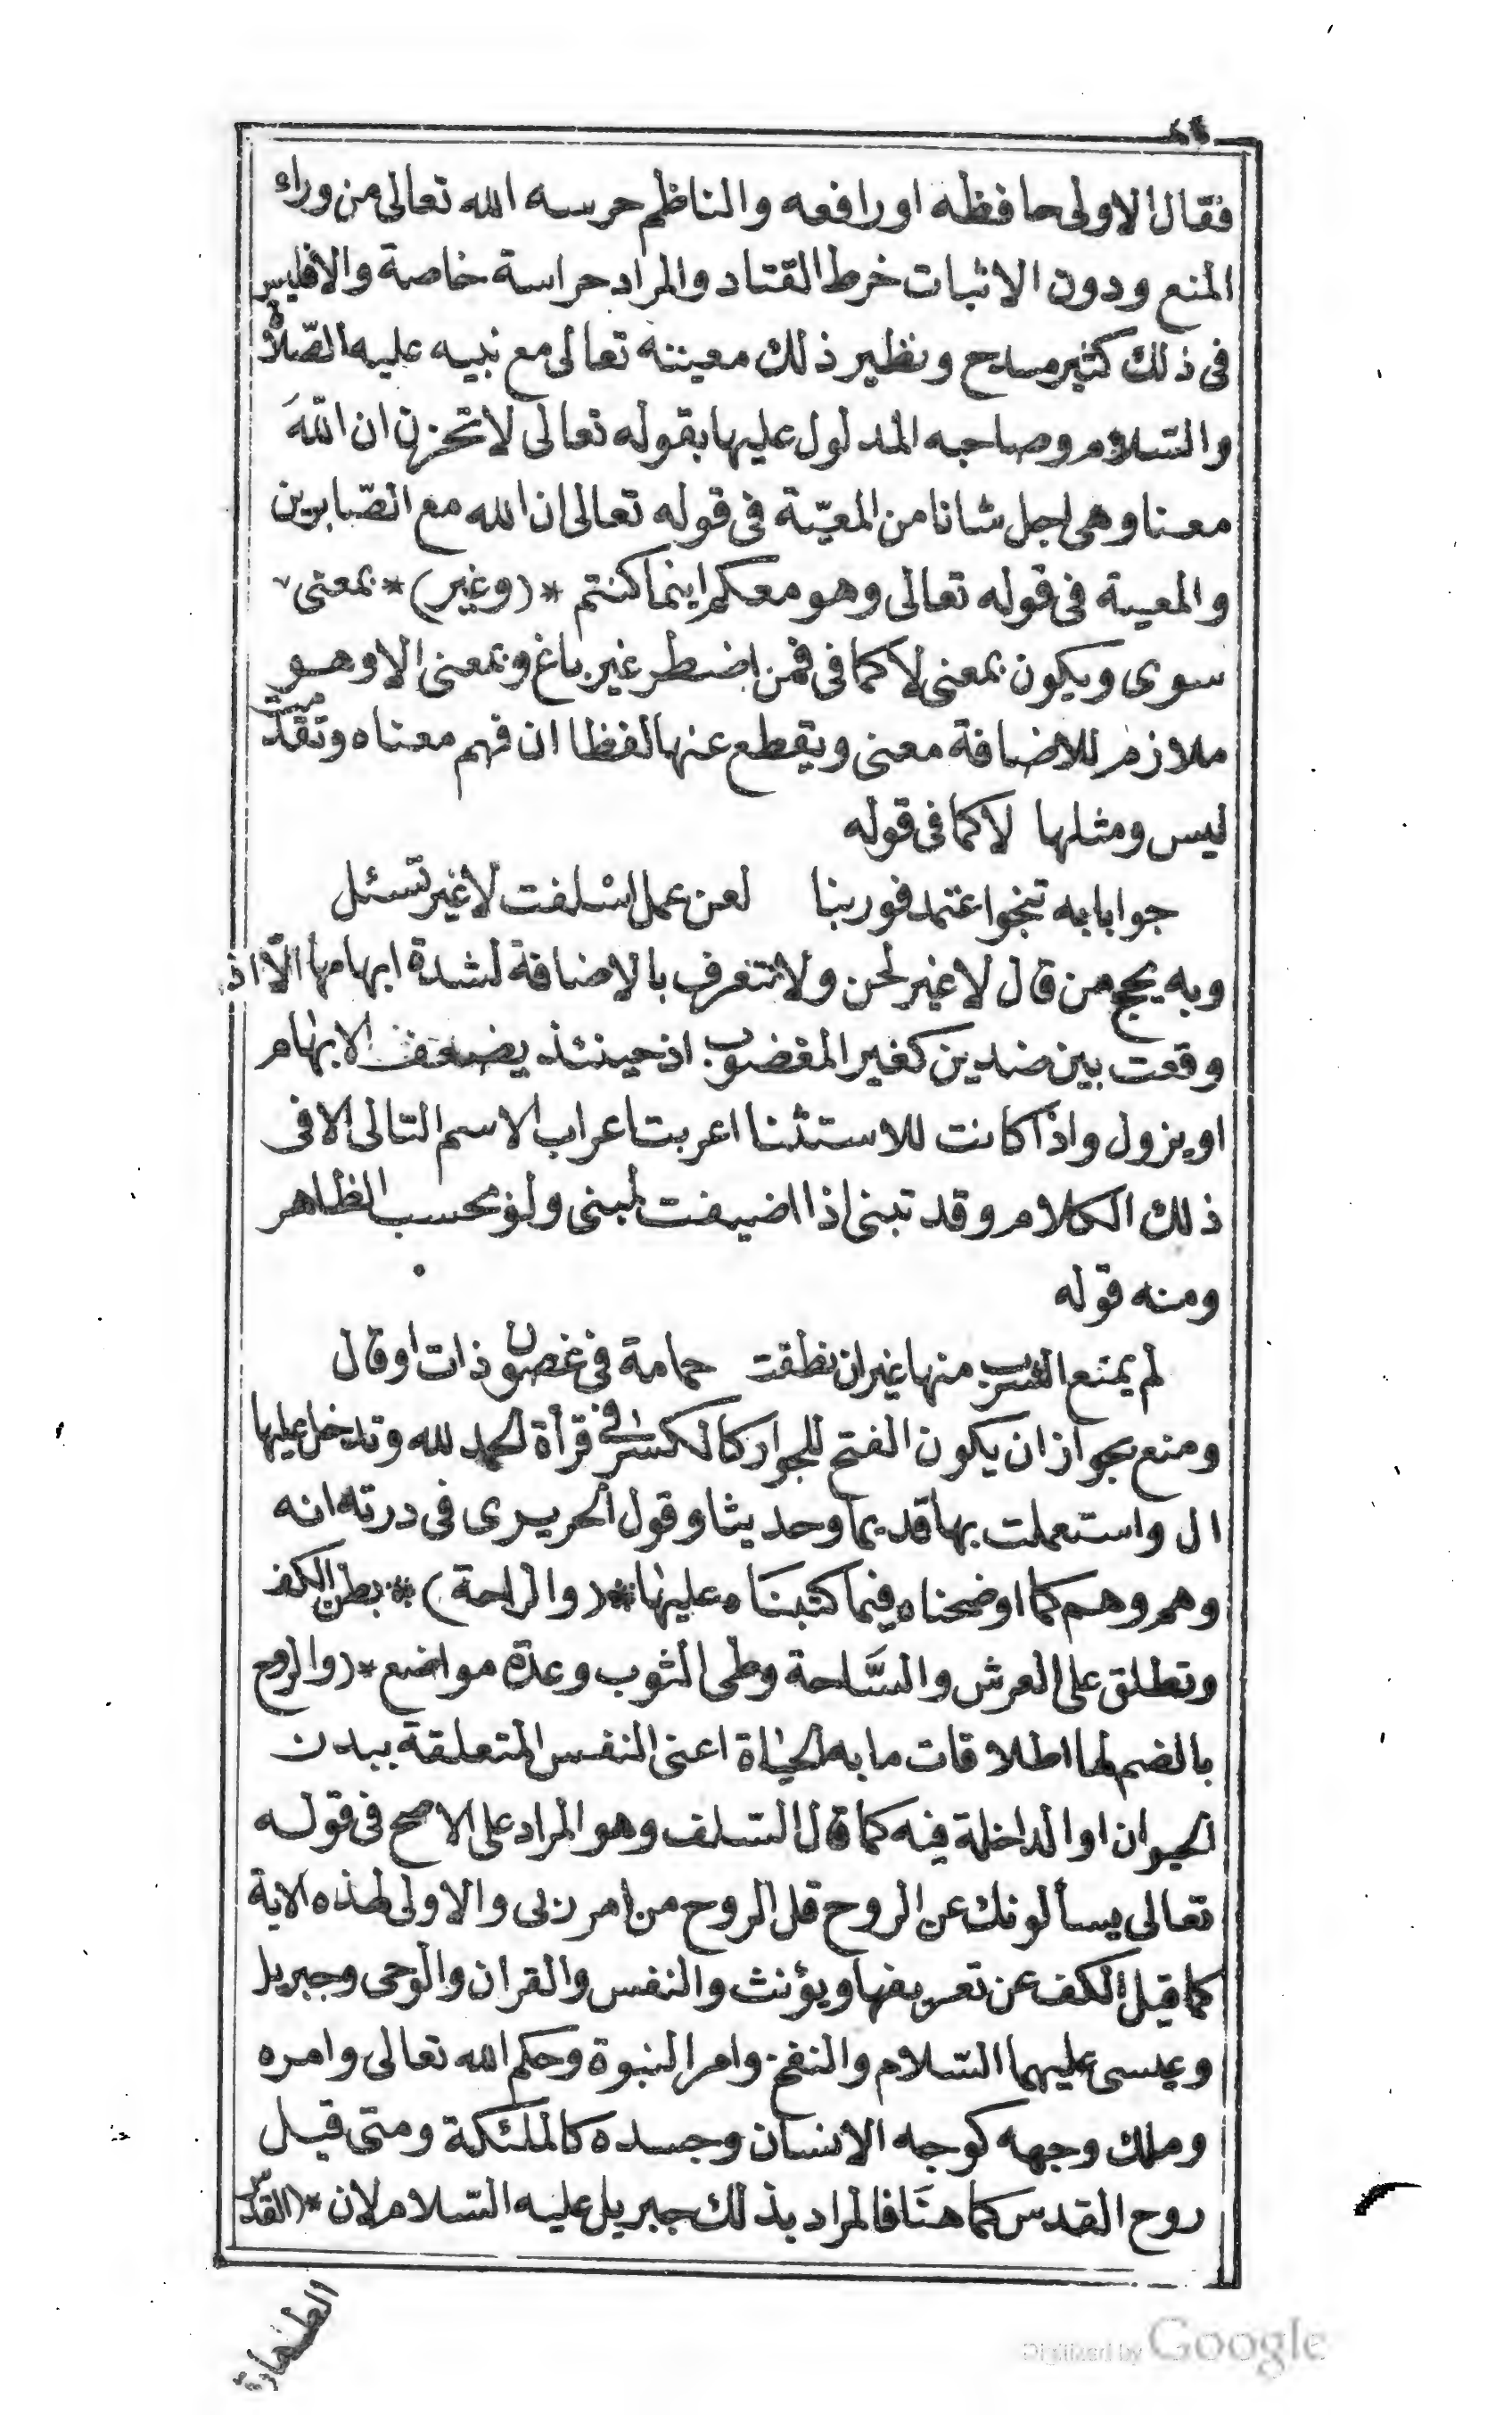 فقال الاولى حافظه او رافعه والناظم حرسه الله تعالى من وراء
المنع ودون الاثبات خرط القتاد والمراد حراسة خاصة والا فليس
فى ذلك كثير مدح ونظير ذلك معيته تعالى مع نبيه عليه الصّلاة
والسّلام وصاحبه المدلول عليها بقوله تعالى لا تحزن ان اللّهَ
معنا وهى اجل شانا من المعيّة فى قوله تعالى ان الله مع الصّابرين
والمعية فى قوله تعالى وهو معكم اينما كنتم *(وغير)* بمعنى
سوى ويكون بمعنى لا كما فى فمن اضطر غير باغ وبمعنى الا وهو
ملازم للاضافة معنى ويقطع عنها لفظا ان فهم معناه وتقدّمت
ليس ومثلها لا كما فى قوله
جوابا به تنجو اعتمد فوربنا لعن عمل اسْلفت لا غير تسئل
وبه يحج من قال لا غير لحن ولا تتعرف بالاضافة لشدة ابهامها الّا اذا
وقعت بين ضدين كغير المغضوب اذ حينئذ يضعف الابهام
او يزول واذا كانت للاستثنا اعربت اعراب الاسم التالى الا فى
ذلك الكلام وقد تبنى اذا اضيفت لمبنى ولو بحسب الظاهر
ومنه قوله
لم يمنع الشرب منها غير ان نطقت حمامة فى غصون ذات اوقال
ومنع بجواز ان يكون الفتح للجوار كالكسر فى قرأة الحمد لله وتدخل عليها
ال واستعملت بها قديما وحديثا وقول الحريرى فى درته انه
وهم وهم كما اوضحناه فيما كتبناه عليها *(والراحة)* بطن الكف
وتطلق على العرش والسَّاحة وطى الثوب وعدة مواضع *(والروح
بالضم لها اطلاقات ما به الحياة اعنى النفس المتعلقة ببدن
الحيوان او الداخلة فيه كما قال السّلف وهو المراد على الاصح فى قوله
تعالى يسألونك عن الروح قل الروح من امر ربى والاولى لهذه الاية
كما قيل الكف عن تعريفها ويؤنث والنفس والقران والوحى وجبريل
وعيسى عليهما السّلام والنفخ وامر النبوة وحكم الله تعالى وامره
وملك وجهه كوجه الانسان وجسده كالملئكة ومتى قيل
روح القدس كما هنَا فالمراد بذلك جبريل عليه السّلام لان *(القدس
الطهارة
Digitized by Google